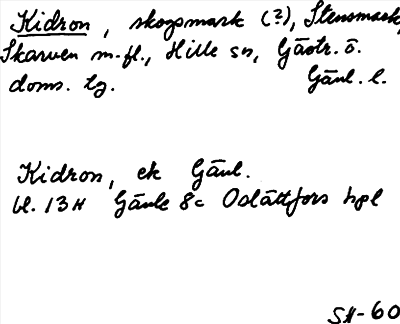 Kidron, skogsmark (?), Stensmark,
Skarven m.fl., Hille sn, Gästr. ö.
doms. tg. Gävl. l.
Kidron, ek Gävl.
bl. 13H Gävle 8c Oslättfors hpl
SH-60